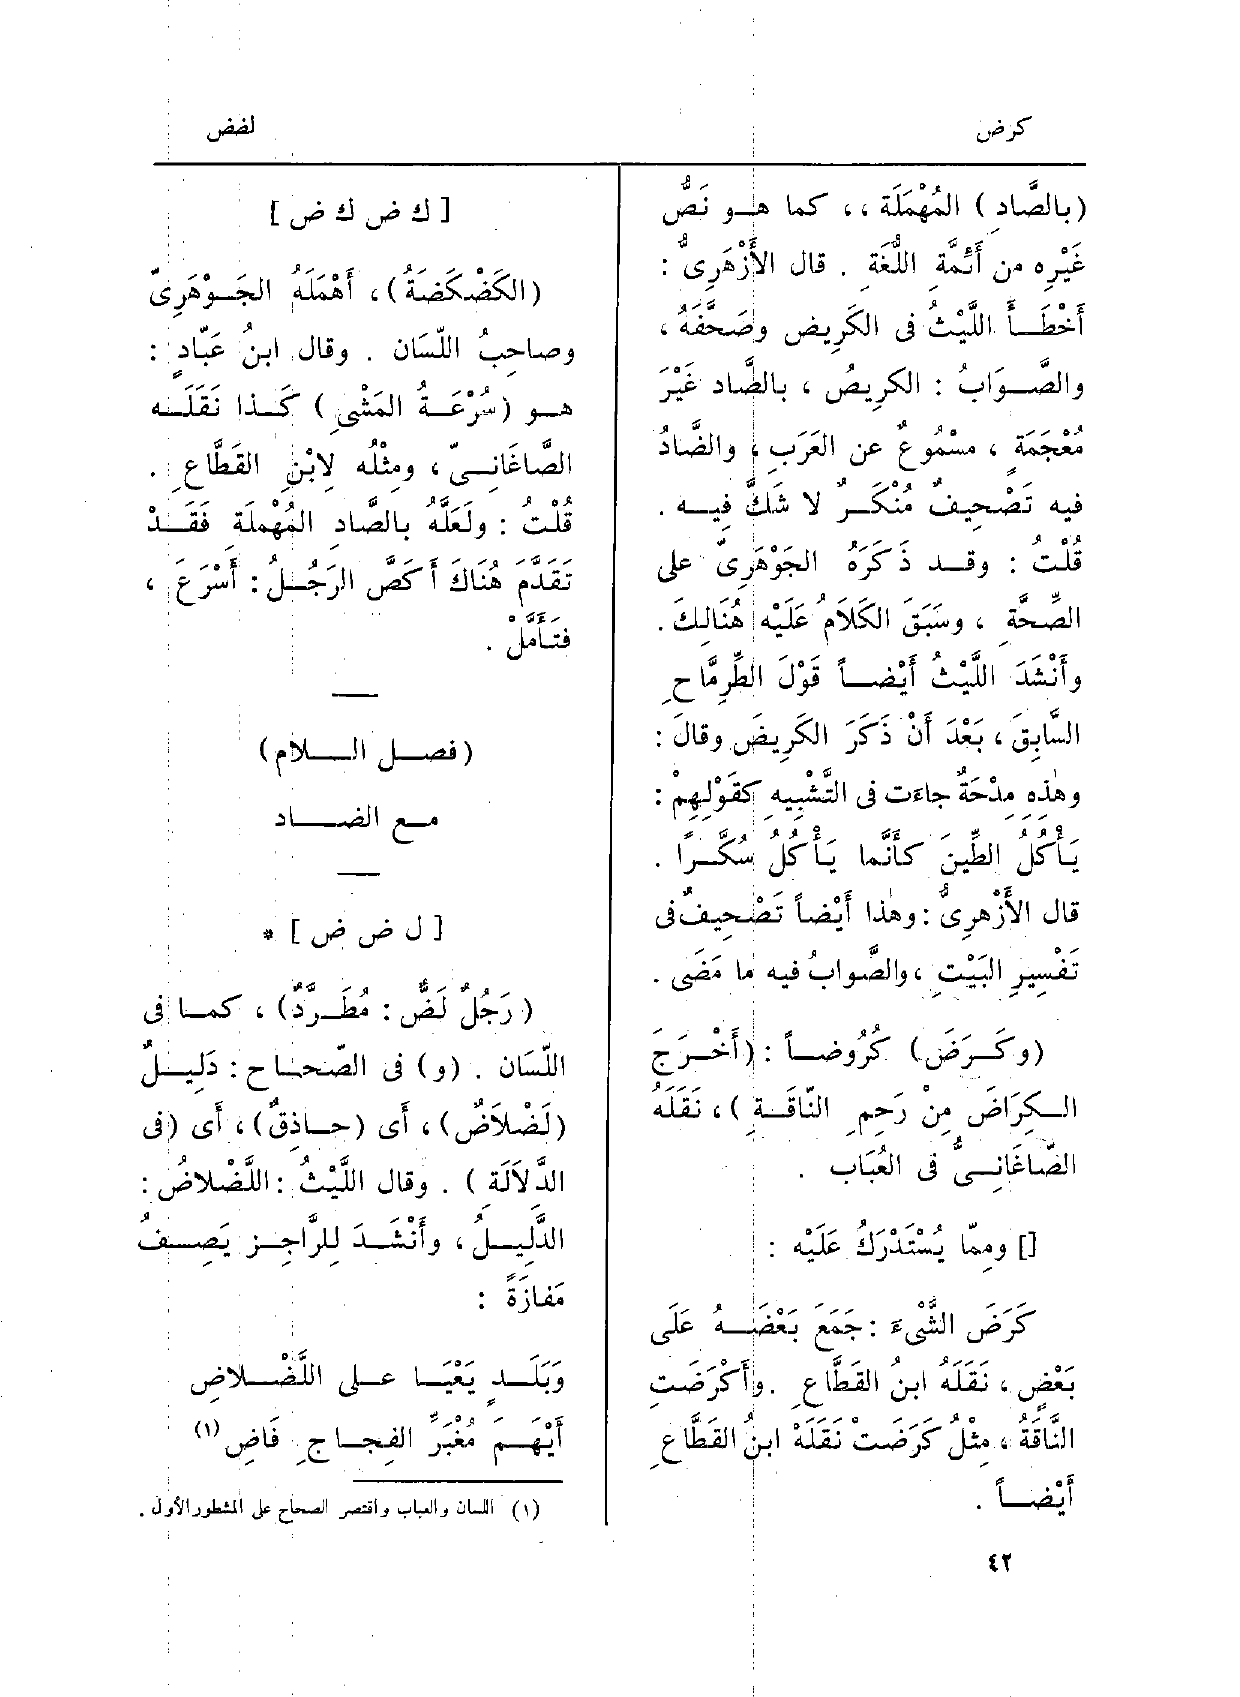 كرض
لضض
(بالصَّاد) المُهْمَلَة ،، كما هـو نَصُّ
غَيْرِه من أَئمَّةِ اللُّغَةِ . قال الأَزْهَرِىُّ :
أَخْطَـأَ اللَّيْثُ فى الكَرِيضِ وصَحَّفَهُ ،
والصَّـوَابُ : الكَرِيصُ ، بالصَّاد غَيْرَ
مُعْجَمَةٍ ، مَسْمُوعٌ عن العَرَبِ ، والضَّادُ
فيه تَصْحِيفٌ مُنْكَـرٌ لا شَكَّ فيـه .
قُلْتُ : وقـد ذَكَرَهُ الجَوْهَرِىّ على
الصِّحَّةِ ، وسَبَقَ الكَلاَمُ عَلَيْه هُنَالِكَ .
وأَنْشَدَ اللَّيْثُ أَيْضـاً قَوْلَ الطِّرِمَّاحِ
السَّابِقَ ، بَعْدَ أَنْ ذَكَرَ الكَرِيضَ وقالَ :
وهٰذِه مِدْحَةٌ جاءَت فى التَّشْبِيهِ كقَوْلِهِمْ :
يَأْكُلُ الطِّينَ كأَنَّما يَأْكُلُ سُكَّـرًا .
قال الأَزْهَرِىُّ : وهٰذا أَيْضاً تَصْحِيفٌ فى
تَفْسِيرِ البَيْتِ ، والصَّوابُ فيه ما مَضَى .
(وكَـرَضَ) كُرُوضـاً : (أَخْـرَجَ
الـكِرَاضَ مِنْ رَحِمِ النَّاقَـةِ ) ، نَقَلَهُ
الصّاغَانِـىُّ فى العُبَاب .
[] وممّا يُسْتَدْرَكُ عَلَيْه :
كَرَضَ الشَّىْءَ : جَمَعَ بَعْضَـهُ عَلَى
بَعْضٍ ، نَقَلَهُ ابنُ القَطَّاعِ . وأَكْرَضَتِ
النَّاقَةُ ، مِثْلُ كَرَضَتْ نَقَلَهْ ابنُ القَطَّاعِ
أَيْضـاً .
[ ك ض ك ض ]
(الكَضْكَضَةُ) ، أَهْمَلَهُ الجَـوْهَرِىّ
وصاحِبُ اللِّسَان . وقال ابنُ عَبّادٍ :
هـو (سُرْعَـةُ المَشْىِ) كَـذا نَقَلَـه
الصَّاغَانِـىّ ، ومثلُه لابْنِ القَطَّاعِ .
قُلْتُ : ولَعَلَّهُ بالصَّاد المُهْمِلَة فَقَـدْ
تَقَدَّمَ هُنَاكَ أَكَصَّ الرَجُـلُ : أَسْرَعَ ،
فتَأَمَّلْ .
(فصـل الـلام)
مـع الضـاد
[ ل ض ض ] *
(رَجُلٌ لَضٌّ : مُطَـرَّدٌ) ، كمـا فى
اللّسَان . (و) فى الصّحـاح : دَلِيـلٌ
(لَضْـلاَضٌ) ، أَى (حـاذِقٌ) ، أَى (فى
الدَّلاَلَةِ ) . وقال اللَّيْثُ : اللَّضْلاضُ :
الدَّلِيـلُ ، وأَنْشَـدَ لِلرَّاجِـز يَصِـفُ
مَفازَةً :
وَبَلَـدٍ يَعْيَـا عـلى اللَّضْـلاضِ
أَيْهَـمَ مُغْبَرِّ الفِجـاجِ فَاضِ (١)
(١) اللسان والعباب واقتصر الصحاح على المشطور الأول .
٤٢